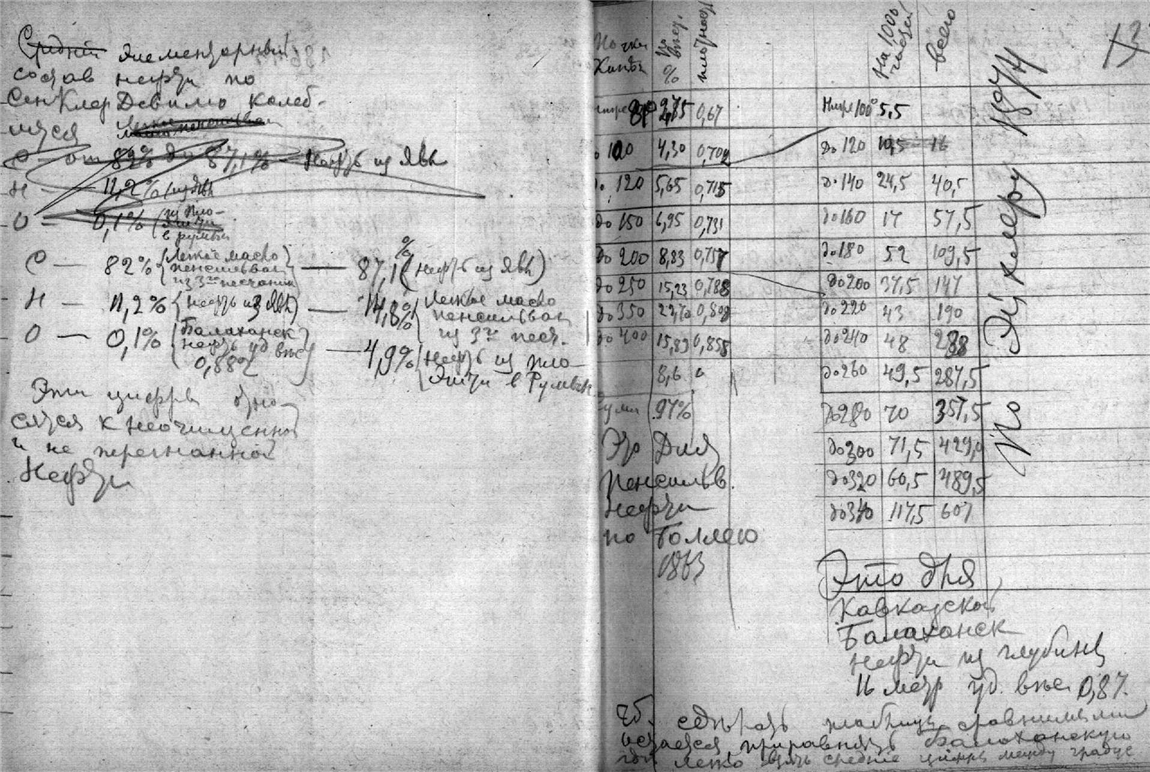 Средній элементарный
состав нефти по
Сен Клер Девилю колеб-
лется
С — от 82% до 87,1% нефть из Явы
Н — 11,2% (
О — 0,1% (из Пло-
ешти
в румын
С — 82% (Легкое масло пенсильван из 3го песчаника) — 87,1% (нефть из Явы)
Н — 11,2% (нефть из Явы) — 14,8% (Легкое масло пенсильван из 3го песч.
О — 0,1% (Балаханск нефть уд. вѣс 0,882) — 4,9% (Нефть из Пло ешти в Румын
Эти цифры отно-
сятся к неочищенной
и не перегнанной
Нефти
Точки
Кипѣн
%
плотност
2,85 0,67
100 4,30 0,702
120 5,65 0,715
до 150 6,95 0,731
до 200 8,83 0,757
до 250 15,23 0,788
до 350 0,809
до 400 15,83 0,858
8,6 "
Сумма 97%
Это Для
Пенсильв.
Нефти
по Боллею
1863
13
На 1000 частей
всего
Ниже 100° 5,5
до 120 10,5 16
до 140 24,5 40,5
до 160 17 57,5
до 180 52 109,5
до 200 37,5 147
до 220 43 190
до 240 48 238
до 260 49,5 287,5
до 280 70 357,5
до 300 71,5 429,0
до 320 60,5 489,5
до 340 117,5 607
По
Это для
Кавказской
Балаханск
нефти из глубины
16 метр уд. вѣс. 0,87.
Чтоб. сдѣлать таблицы сравнимыми
остается приравнять Балаханскую
легко взять средние цифры между градус